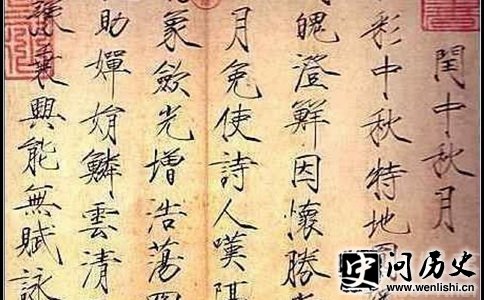 閏中秋月
彩中秋特地圓
魄澄鮮因懷勝
月免使詩人嘆隔
象斂光增浩蕩
助嬋娟鱗雲清
興能無賦詠
史问历史
www.wenlishi.cn